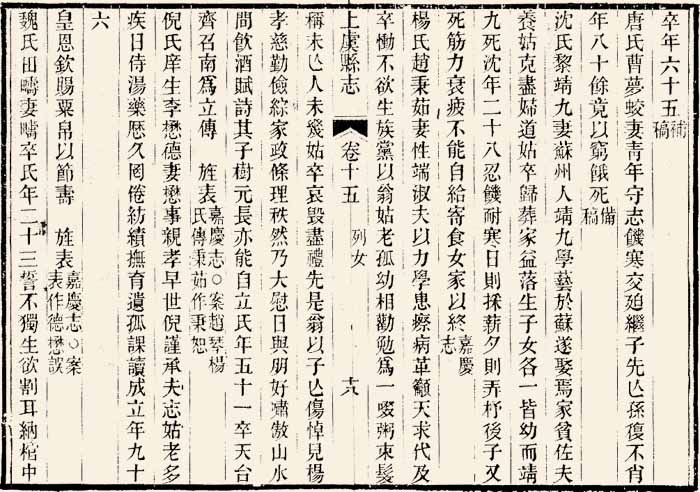 卒年六十五備稿
唐氏曹夢蛟妻青年守志饑寒交廹繼子先亾孫復不肖
年八十餘竟以窮餓死備稿
沈氏黎靖九妻蘇州人靖九學藝於蘇遂娶焉家貧佐夫
養姑克盡婦道姑卒歸葬家益落生子女各一皆幼而靖
九死沈年二十八忍饑耐寒日則採薪夕則弄杼後子又
死筋力衰疲不能自給寄食女家以終嘉慶志
楊氏趙秉茹妻性端淑夫以力學患瘵病革籲天求代及
卒慟不欲生族黨以翁姑老孤幼相勸勉爲一啜粥束髮
上虞縣志 卷十五 列女 十八
稱未亾人未幾姑卒哀毀盡禮先是翁以子亾傷悼見楊
孝慈勤儉綜家政條理秩然乃大慰日與朋好嘯傲山水
間飲酒賦詩其子樹元長亦能自立氏年五十一卒天台
齊召南爲立傳 旌表嘉慶志○案趙琴楊氏傳秉茹作秉恕
倪氏庠生李懋德妻懋事親孝早世倪謹承夫志姑老多
疾日侍湯藥歷久罔倦紡績撫育遺孤課讀成立年九十
六
皇恩欽賜粟帛以節壽 旌表嘉慶志○案表作德懋誤
魏氏田疇妻疇卒氏年二十三誓不獨生欲割耳納棺中